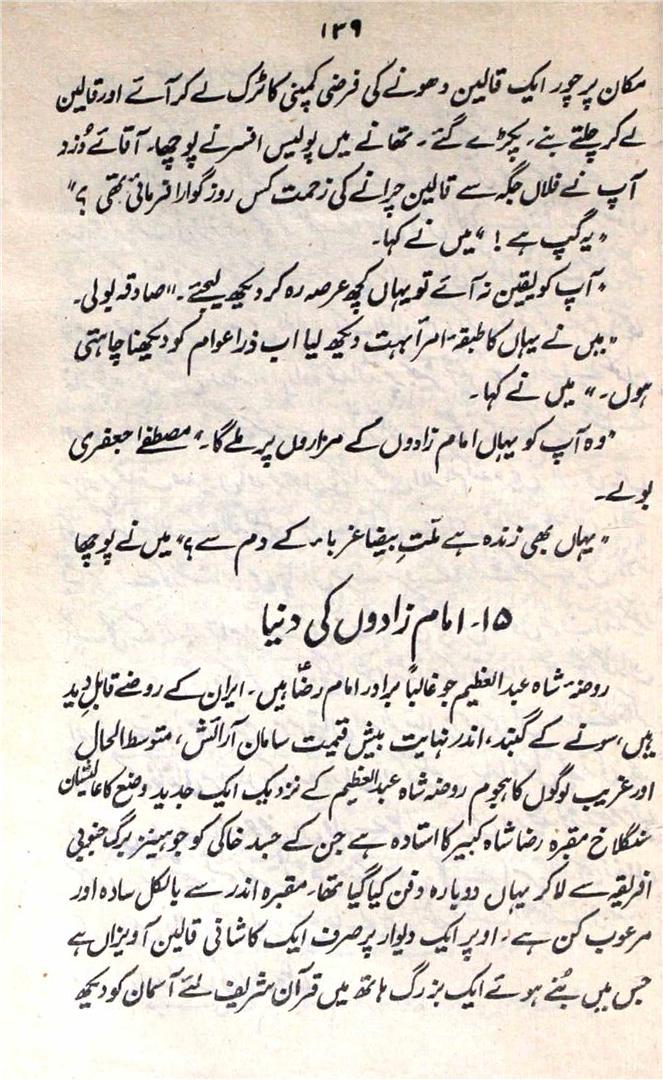 ۱۳۹
مکان پر چور ایک قالین دھونے کی فرضی کمپنی کا ٹرک لے کر آئے اور قالین
لے کر چلتے بنے، پکڑے گئے۔ تھانے میں پولیس افسر نے پوچھا۔ آقائے دُزد
آپ نے فلاں جگہ سے قالین چرانے کی زحمت کس روز گوارا فرمائی تھی ؟"
"یہ گپ ہے ! "میں نے کہا۔
"آپ کو یقین نہ آئے تو یہاں کچھ عرصہ رہ کر دیکھ لیجئے۔"صادقہ بولی۔
"میں نے یہاں کا طبقۂ امرأ بہت دیکھ لیا اب ذرا عوام کو دیکھنا چاہتی
ہوں۔" میں نے کہا۔
"وہ آپ کو یہاں امام زادوں کے مزاروں پر ملے گا۔" مصطفےٰ جعفری
بولے۔
"یہاں بھی زندہ ہے ملّتِ بیضا غربا کے دم سے؟" میں نے پوچھا
۱۵۔ امام زادوں کی دنیا
روضۂ شاہ عبدالعظیم جو غالباً برادر امام رضاؑ ہیں۔ ایران کے روضے قابلِ دید
ہیں، سونے کے گنبد، اندر نہایت بیش قیمت سامان آرائش، متوسط الحال
اور غریب لوگوں کا ہجوم روضہ شاہ عبدالعظیم کے نزدیک ایک جدید وضع کا عالیشان
سنگلاخ مقبرہ رضا شاہ کبیر کا استادہ ہے جن کے جسد خاکی کو جوہینز برگ جنوبی
افریقہ سے لا کر یہاں دوبارہ دفن کیا گیا تھا۔ مقبرہ اندر سے بالکل سادہ اور
مرعوب کن ہے۔ اوپر ایک دیوار پر صرف ایک کاشانی قالین آویزاں ہے
جس میں بُنے ہوئے ایک بزرگ ہاتھ میں قرآن شریف لئے آسمان کو دیکھ